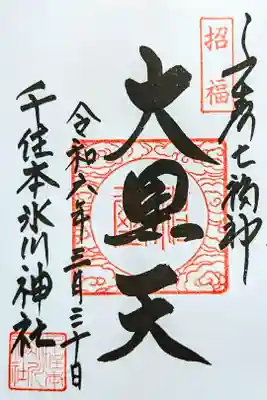 千寿七福神
招福
大黒天
令和六年三月三十日
千住本氷川神社